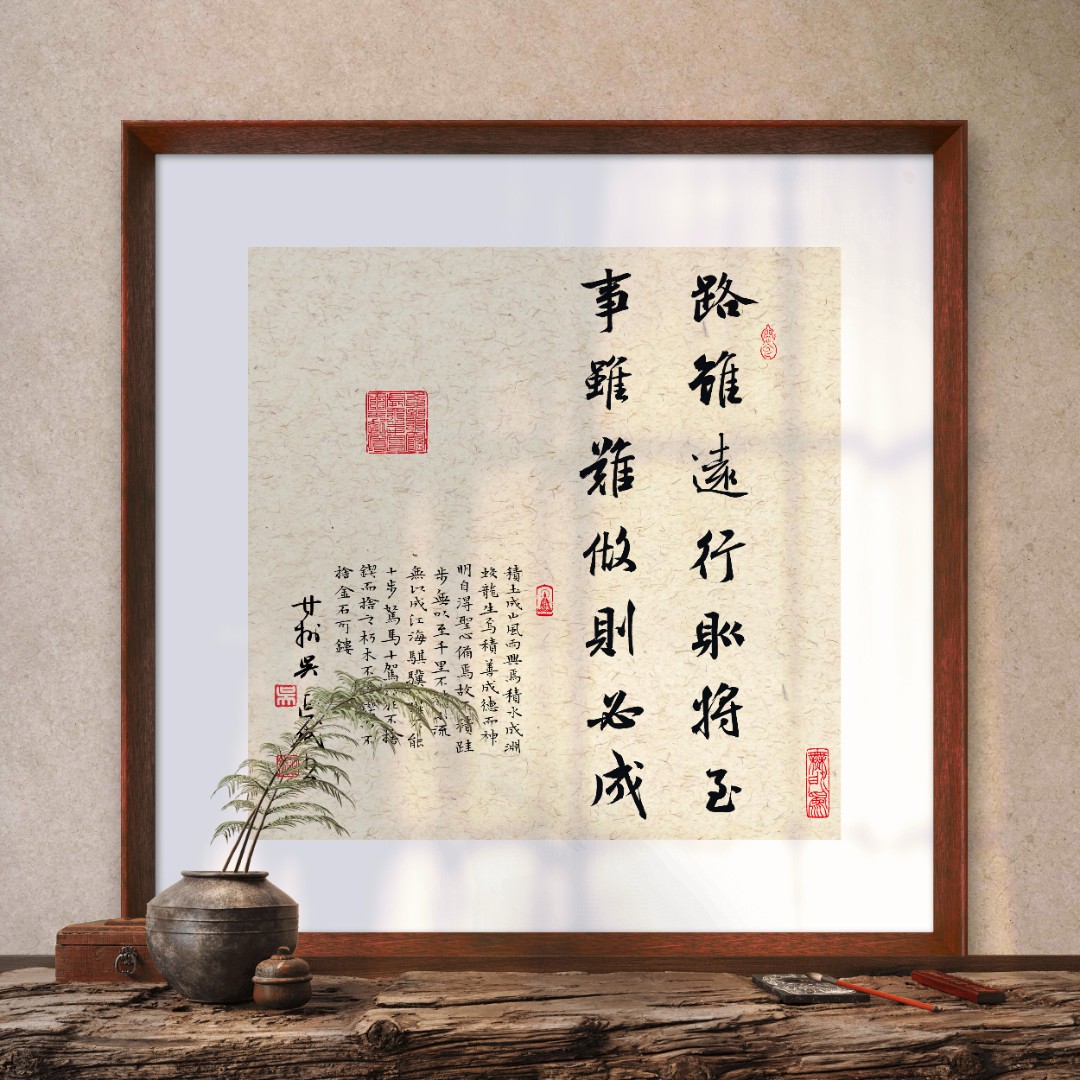 路雖遠行則將至
事雖難做則必成
積土成山風雨興焉積水成淵
蛟龍生焉積善成德而神
明自得聖心備焉故不積跬
步無以至千里不流
無以成江海騏驥能
十步駑馬十駕不捨
鍥而捨之朽木不不
捨金石可鏤
吳